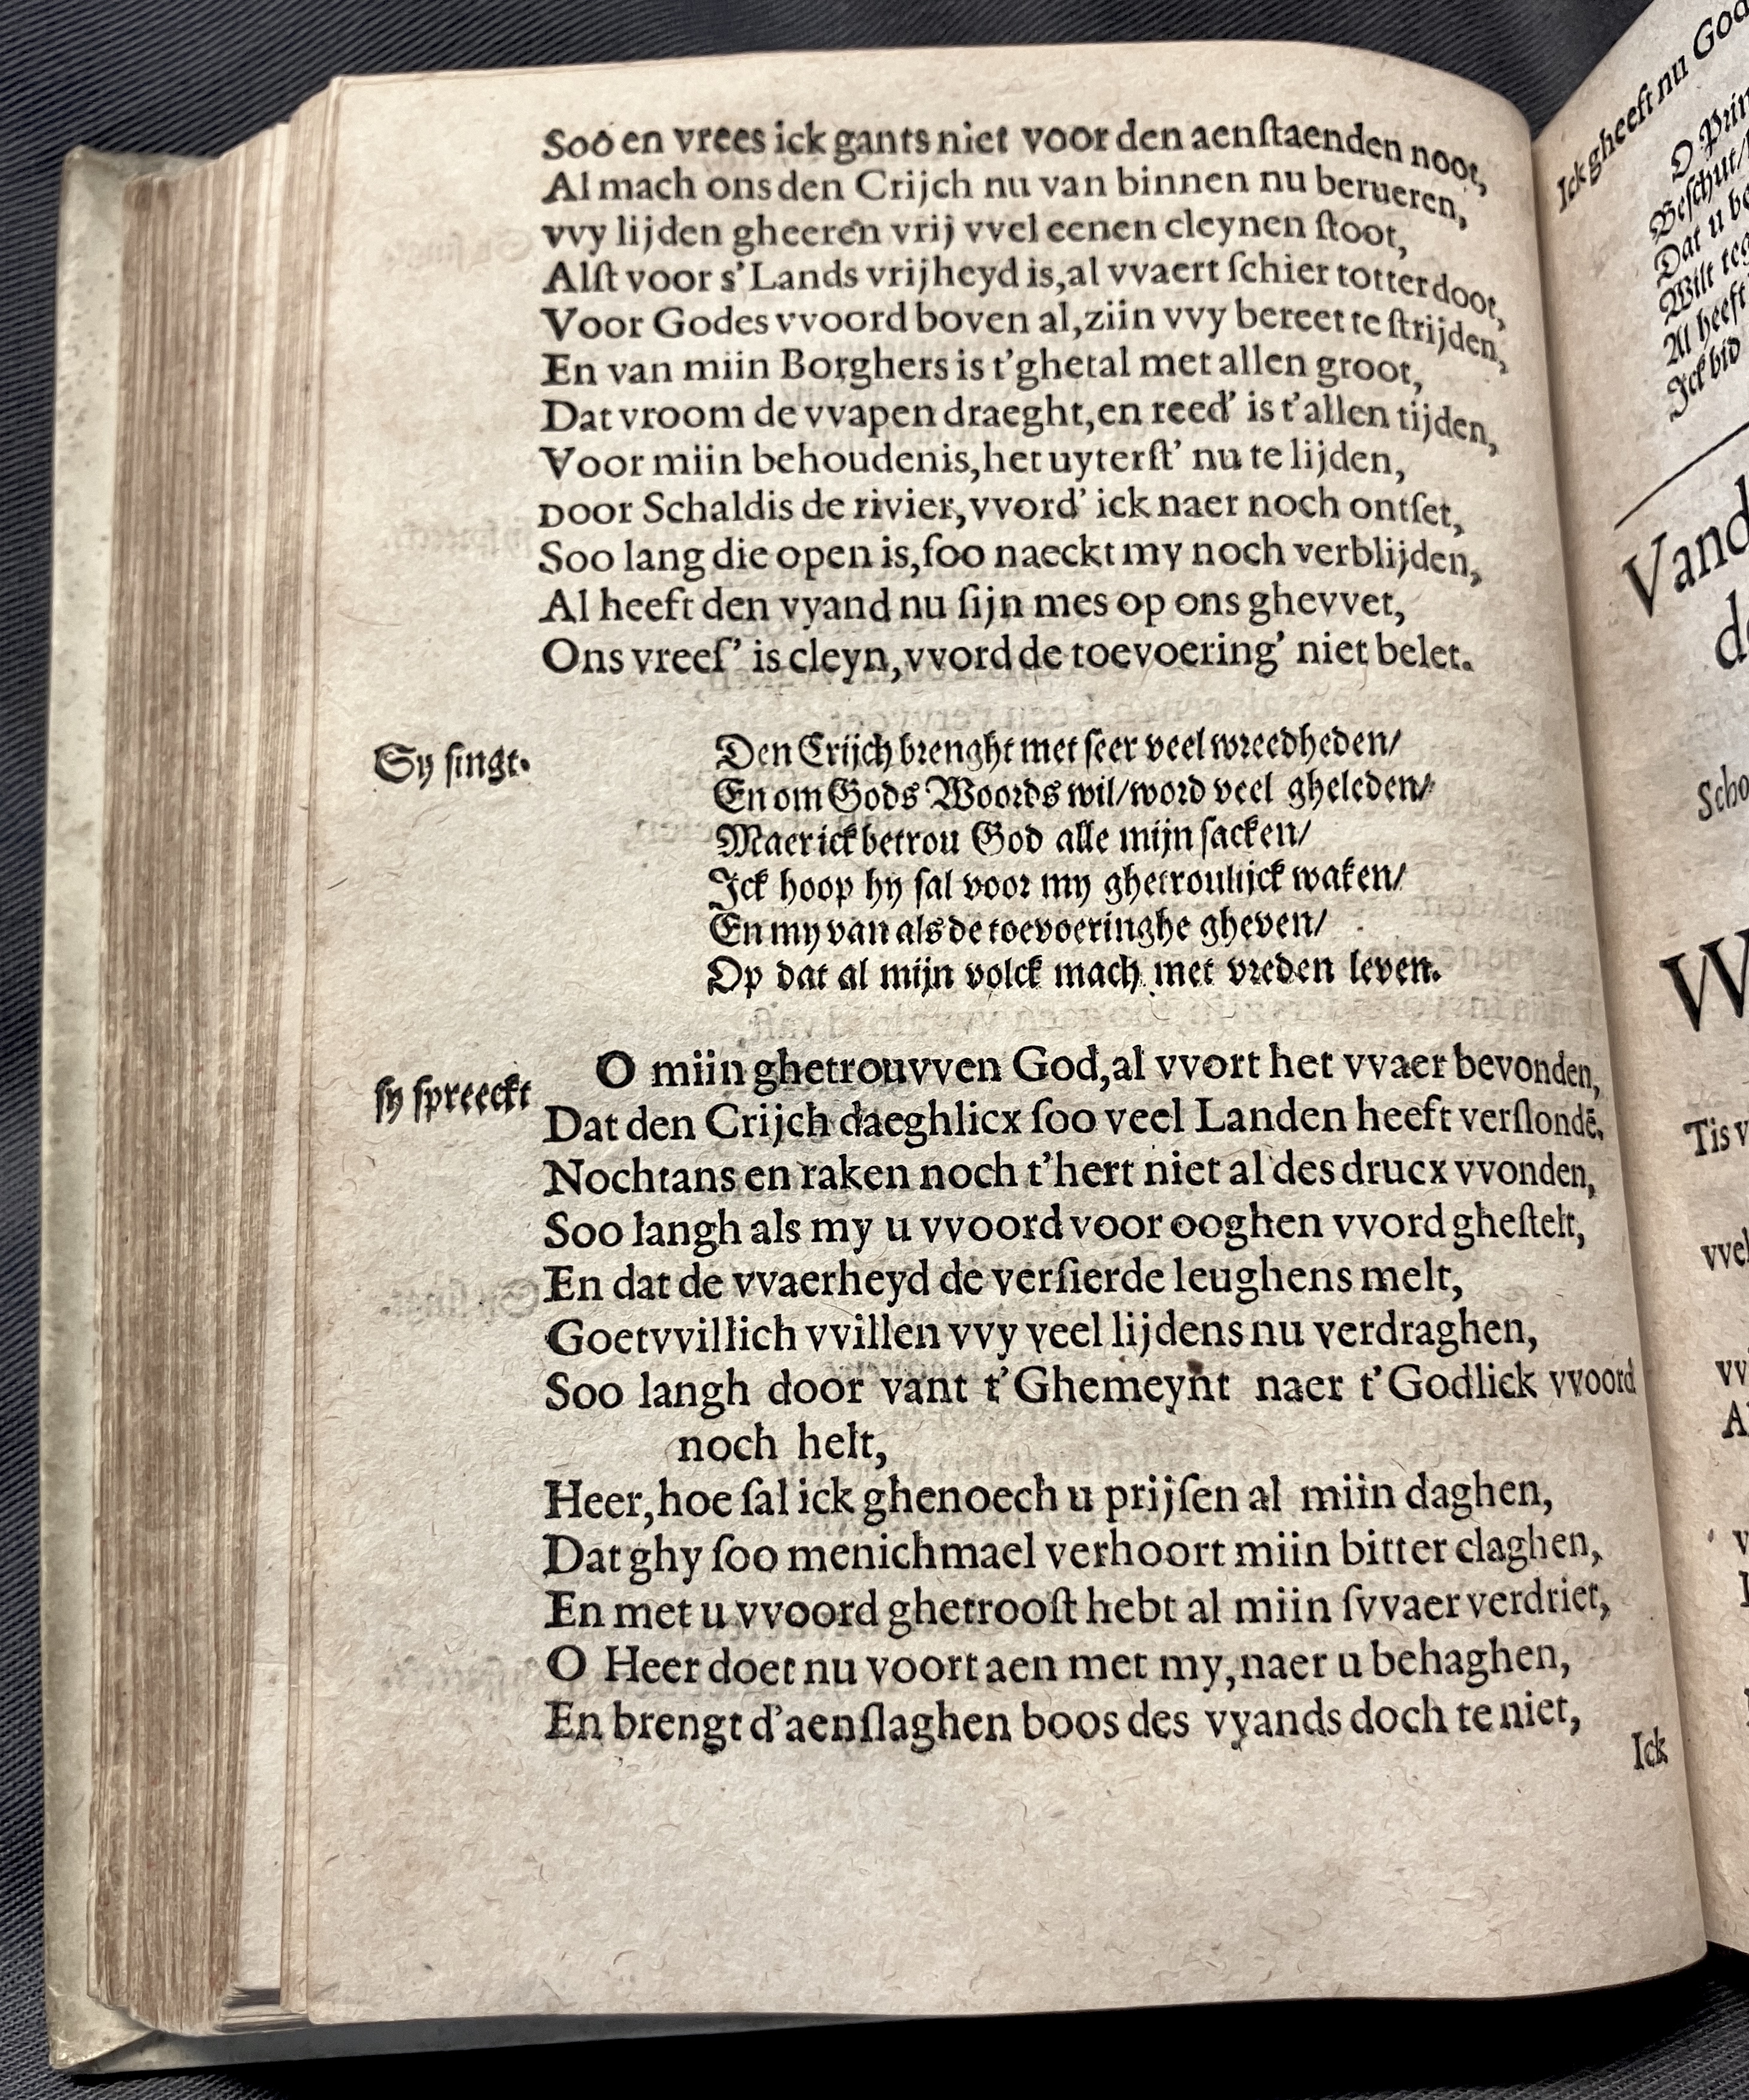 Soo en vrees ick gants niet voor den aenſtaenden noot,
Al mach ons den Crijch nu van binnen nu berueren,
vvy lijden gheeren vrij vvel eenen cleynen ſtoot,
Alſt voor s'Lands vrijheyd is, al vvaert ſchier totter doot,
Voor Godes vvoord boven al, ziin vvy bereet te ſtrijden,
En van miin Borghers is t'ghetal met allen groot,
Dat vroom de vvapen draeght, en reed' is t'allen tijden,
Voor miin behoudenis, het uyterſt' nu te lijden,
Door Schaldis de rivier, vvord' ick naer noch ontſet,
Soo lang die open is, ſoo naeckt my noch verblijden,
Al heeft den vyand nu ſijn mes op ons ghevvet,
Ons vreeſ' is cleyn, vvord de toevoering' niet belet.
Sy ſingt.
Den Crijch brenght met ſeer veel wreedheden/
En om Gods Woords wil/word veel gheleden/
Maer ick betrou God alle mijn ſacken/
Ick hoop hy ſal voor my ghetroulijck waken/
En my van als de toevoeringhe gheven/
Op dat al mijn volck mach met vreden leven.
ſy ſpreeckt
O miin ghetrouvven God, al vvort het vvaer bevonden,
Dat den Crijch daeghlicx ſoo veel Landen heeft verſlondē.
Nochtans en raken noch t'hert niet al des drucx vvonden,
Soo langh als my u vvoord voor ooghen vvord gheſtelt,
En dat de vvaerheyd de verſierde leughens melt,
Goetvvillich vvillen vvy veel lijdens nu verdraghen,
Soo langh door vant t'Ghemeynt naer t'Godlick vvoord
noch helt,
Heer, hoe ſal ick ghenoech u prijſen al miin daghen,
Dat ghy ſoo menichmael verhoort miin bitter claghen,
En met u vvoord ghetrooſt hebt al miin ſvvaer verdriet,
O Heer doet nu voort aen met my, naer u behaghen,
En brengt d'aenſlaghen boos des vyands doch te niet,
Ick
Ick gheeft nu God
O Prin
Beſchut/
Dat u be
Wilt teg
Al heeft
Ick bid
Vand
Scho
W
Tis v
vvel